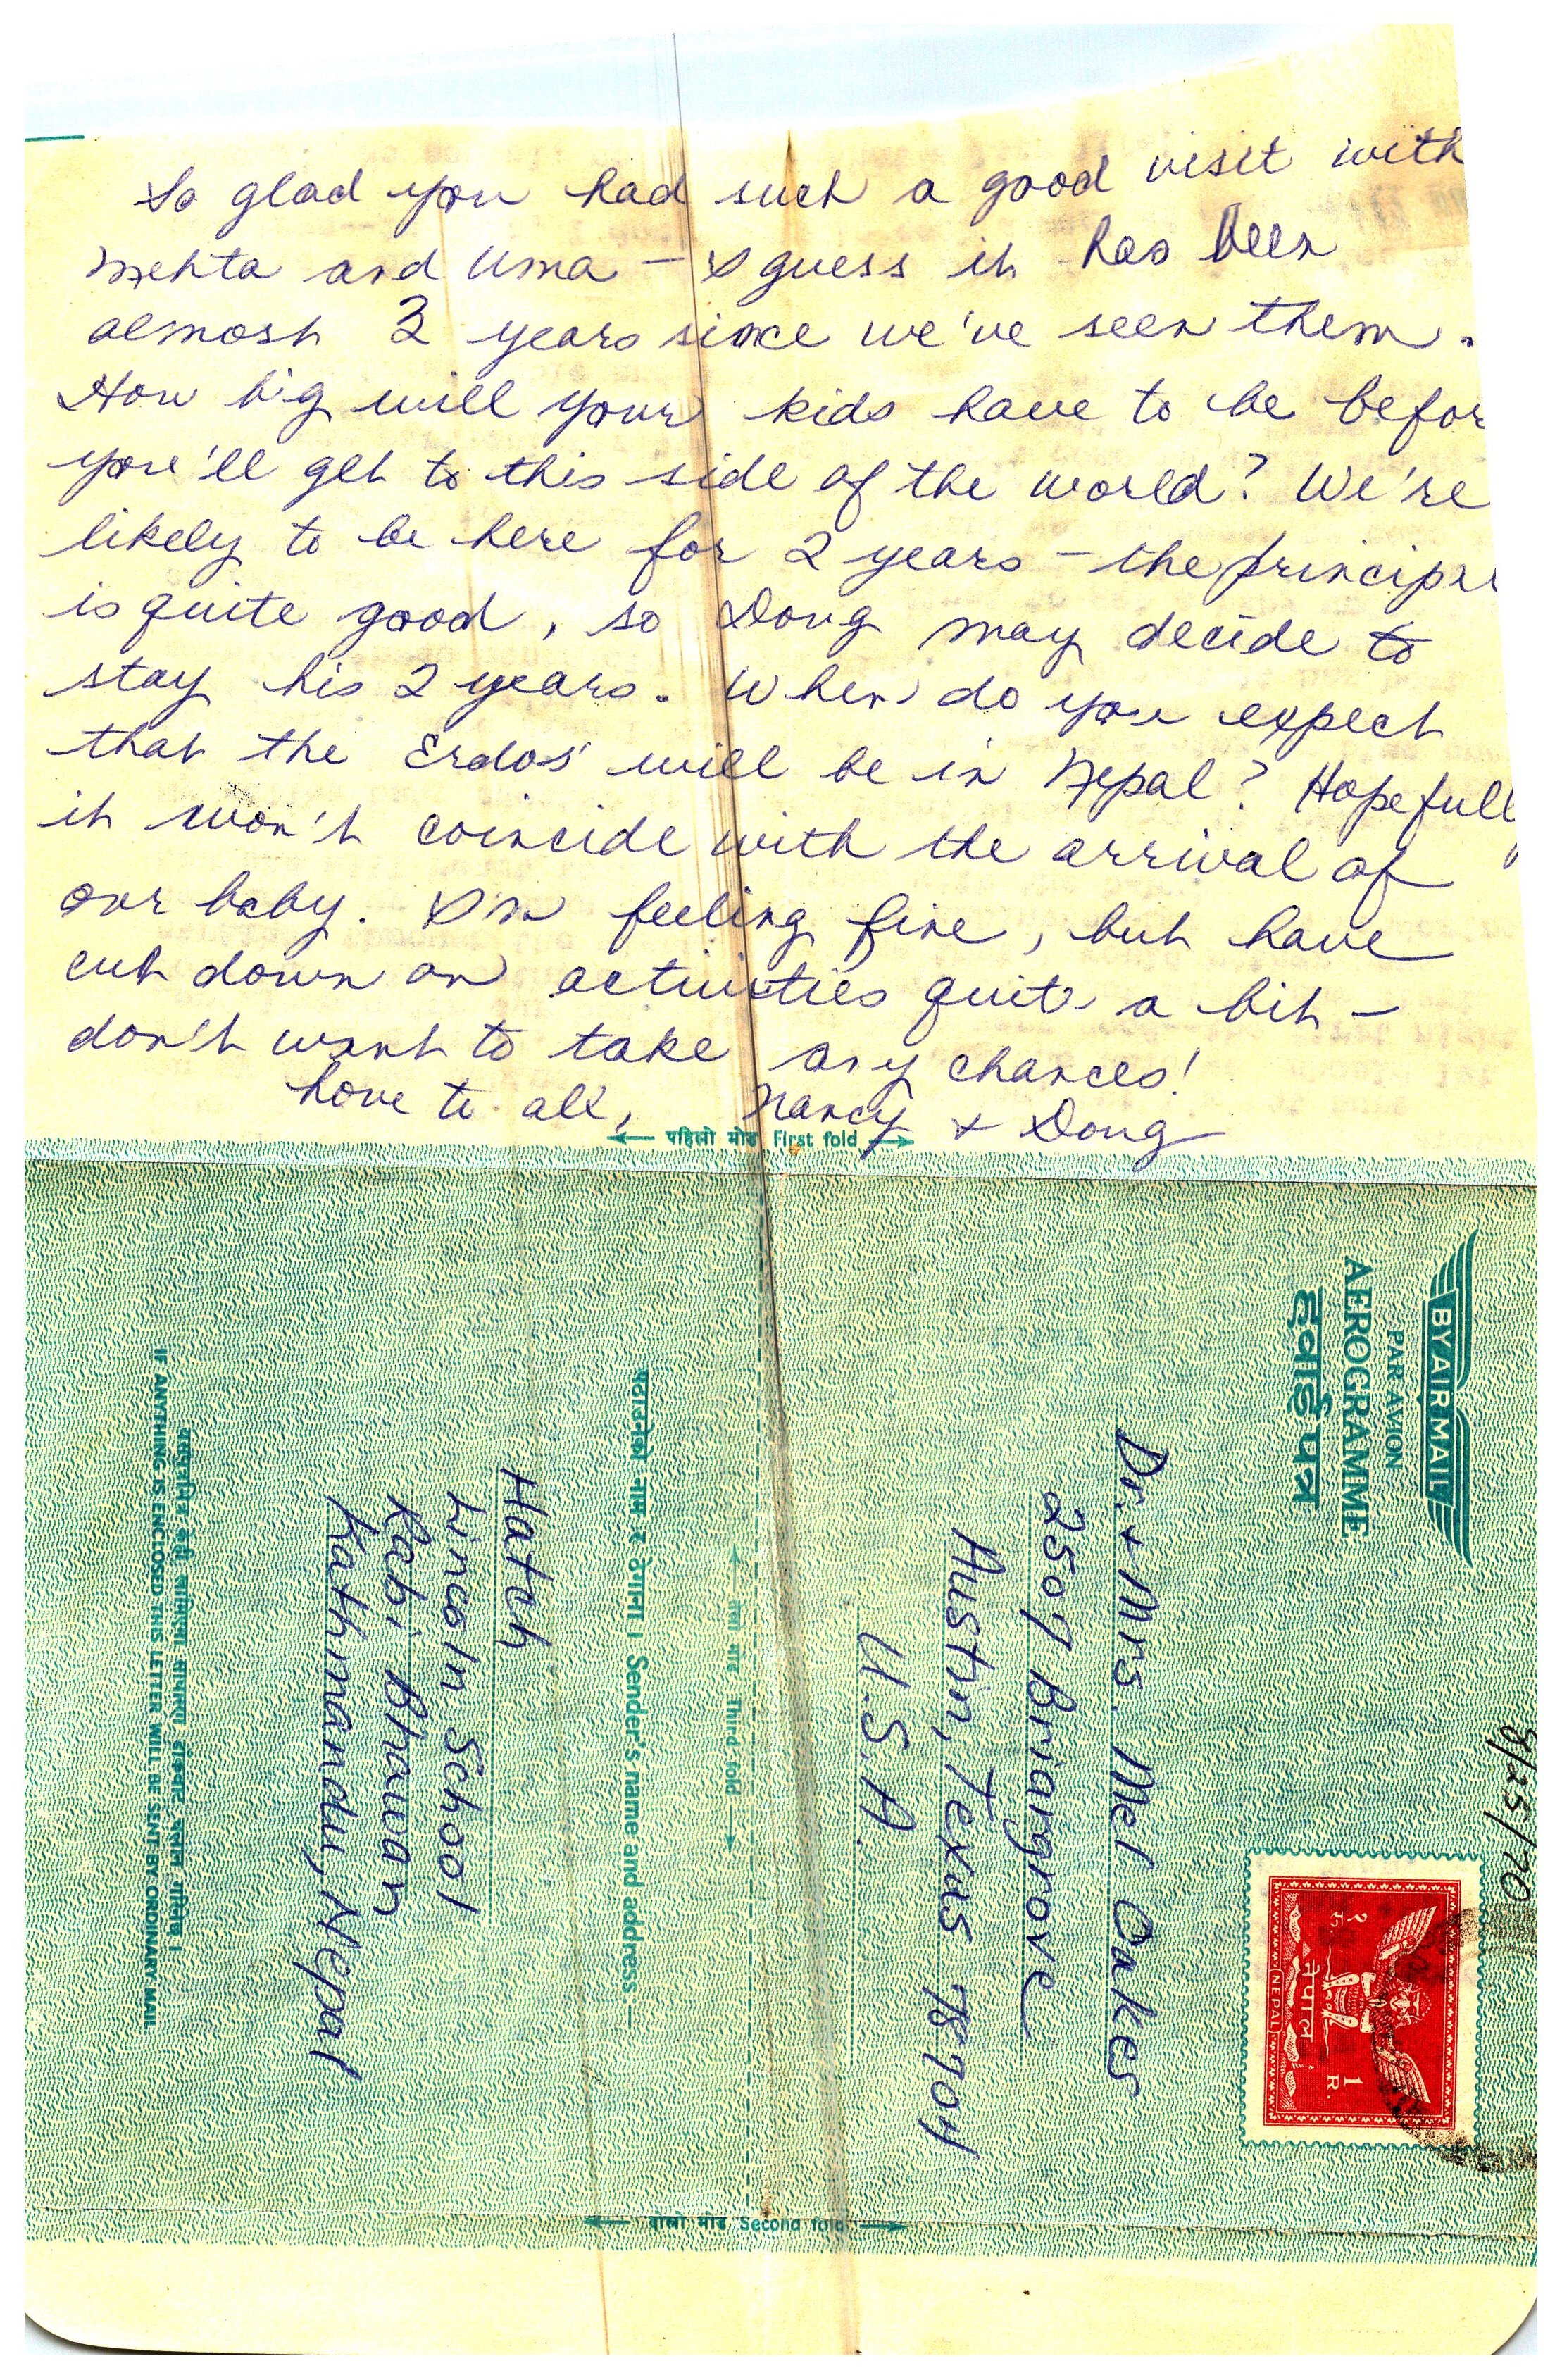 So glad you had such a good visit with
Mehta and Uma — I guess it has been
almost 3 years since we've seen them.
How big will your kids have to be befor
you'll get to this side of the world? We're
likely to be here for 2 years — the principa
is quite good, so Doug may decide to
stay his 2 years. When do you expect
that the Erdos' will be in Nepal? Hopefully
it won't coincide with the arrival of
our baby. I'm feeling fine, but have
cut down on activities quite a bit —
don't want to take any chances!
Love to all, Nancy & Doug
← पहिलो मोड First fold →
BY AIR MAIL
PAR AVION
AEROGRAMME
हवाई पत्र
8/25/70
नेपाल
NEPAL
1 R.
Dr. & Mrs. Mel Oakes
2507 Briargrove
Austin, Texas 78704
U.S.A.
← मोड Third fold →
पठाउनेको नाम र ठेगाना । Sender's name and address:—
Hatch
Lincoln School
Rabi Bhawan
Kathmandu, Nepal
IF ANYTHING IS ENCLOSED THIS LETTER WILL BE SENT BY ORDINARY MAIL
← दोस्रो मोड Second fold →